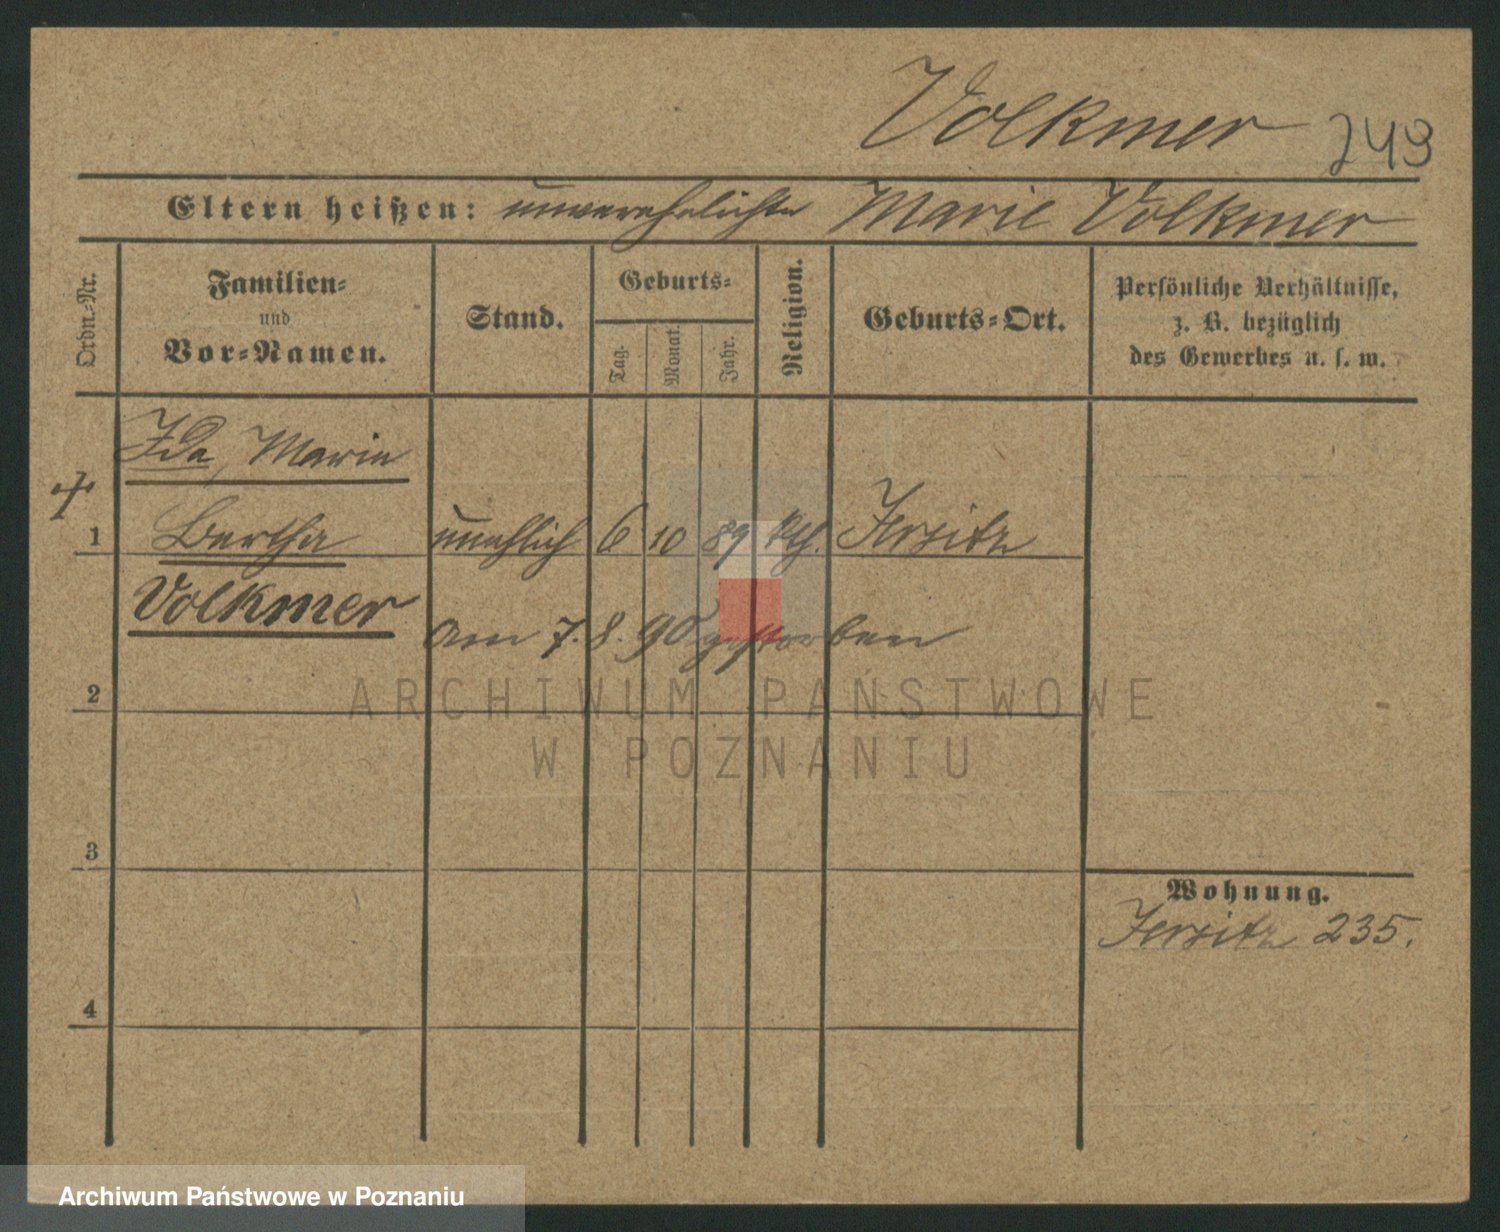 Volkmer 249
Eltern heißen: unverehelichte Marie Volkmer
Ordn.-Nr.
Familien-
und
Vor-Namen.
Stand.
Geburts-
Tag.
Monat.
Jahr.
Religion.
Geburts-Ort.
Persönliche Verhältnisse,
z. B. bezüglich
des Gewerbes u. s. w.
Ida, Marie
1 Bertha unehlich 6 10 89 kth. Jersitz
Volkmer
am 7. 8. 90 gestorben
2
ARCHIWUM PAŃSTWOWE
W POZNANIU
3
Wohnung.
Jersitz 235.
4
Archiwum Państwowe w Poznaniu